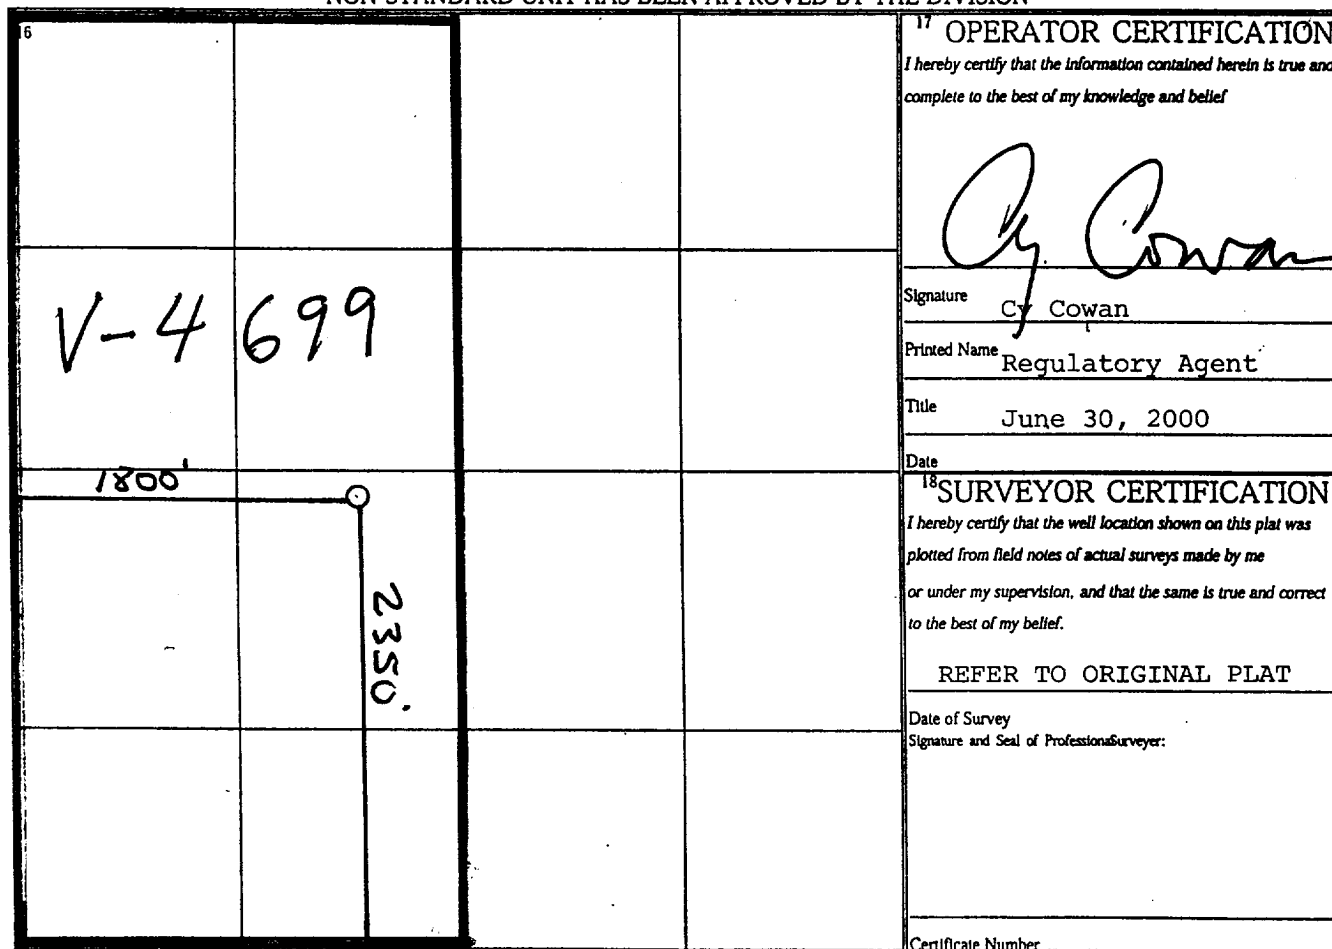 NON-STANDARD UNIT HAS BEEN APPROVED BY THE DIVISION
16
V-4699
1800'
2350'
17 OPERATOR CERTIFICATION
I hereby certify that the information contained herein is true and
complete to the best of my knowledge and belief
Cy Cowan
Signature
Cy Cowan
Printed Name
Regulatory Agent
Title
June 30, 2000
Date
18 SURVEYOR CERTIFICATION
I hereby certify that the well location shown on this plat was
plotted from field notes of actual surveys made by me
or under my supervision, and that the same is true and correct
to the best of my belief.
REFER TO ORIGINAL PLAT
Date of Survey
Signature and Seal of ProfessionalSurveyer:
Certificate Number